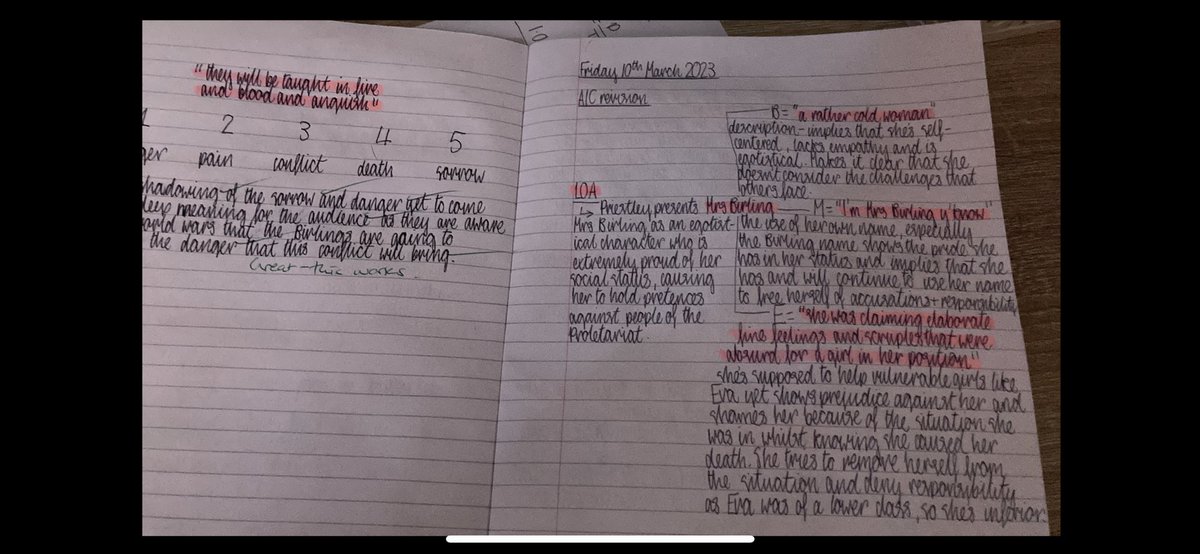 "they will be taught in fire
and blood and anguish"
2 3 4 5
pain conflict death sorrow
shadowing of the sorrow and danger yet to come
deep meaning for the audience as they are aware
world wars that the Birlings are going to
the danger that this conflict will bring.
Great - this works.
Friday 10th March 2023
AIC revision
B= "a rather cold woman"
description - implies that she's self-
centered, lacks empathy and is
egotistical. Makes it clear that she
doesn't consider the challenges that
others face.
10A
↳ Priestley presents Mrs Birling
Mrs Birling as an egotist-
ical character who is
extremely proud of her
social status, causing
her to hold pretences
against people of the
Proletariat.
M= "I'm Mrs Birling y'know"
the use of her own name, especially
the Birling name shows the pride she
has in her status and implies that she
has and will continue to use her name
to free herself of accusations + responsibility
E= "she was claiming elaborate
fine feelings and scruples that were
absurd for a girl in her position"
she's supposed to help vulnerable girls like
Eva yet shows prejudice against her and
shames her because of the situation she
was in whilst knowing she caused her
death. She tries to remove herself from
the situation and deny responsibility
as Eva was of a lower class, so she's inferior.